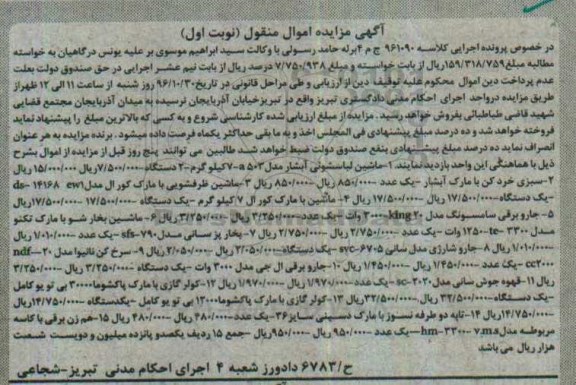 آگهی مزایده اموال منقول (نوبت اول)
در خصوص پرونده اجرایی کلاسه ۹۶۱۰۹۰ ج م ۴ برله حامد رسولی با وکالت سید ابراهیم موسوی بر علیه یونس درگاهیان به خواسته
مطالبه مبلغ ۱۵۹/۳۱۸/۷۵۹ ریال از بابت خواسته و مبلغ ۷/۷۵۰/۹۳۸ درصد ریال از بابت نیم عشر اجرایی در حق صندوق دولت بعلت
عدم پرداخت دین اموال محکوم علیه توقیف دین از ارزیابی و طی مراحل قانونی در تاریخ ۹۶/۱۰/۳۰ روز شنبه از ساعت ۱۱ الی ۱۲ ظهر از
طریق مزایده در واحد اجرای احکام مدنی دادگستری تبریز واقع در تبریز خیابان آذربایجان نرسیده به میدان آذربایجان مجتمع قضایی
شهید قاضی طباطبائی بفروش خواهد رسید. مزایده از مبلغ ارزیابی شده کارشناسی شروع و به کسی که بالاترین مبلغ را پیشنهاد نماید
فروخته خواهد شد و ده درصد مبلغ پیشنهادی فی المجلس اخذ و به ما بقی حداکثر یکماه فرصت داده میشود. برنده مزایده به هر عنوان
انصراف نماید ده درصد مبلغ پیشنهادی بنفع صندوق دولت ضبط خواهد شد. طالبین می توانند پنج روز قبل از مزایده از اموال بشرح
ذیل با هماهنگی این واحد بازدید نمایند. ۱- ماشین لباسشوئی آبشار مدل a۵۰۳-۷ کیلو گرم-۲ دستگاه-۷/۵۰۰/۰۰۰ ریال ۱۵/۰۰۰/۰۰۰ ریال
۲-سبزی خرد کن با مارک آبشار -یک عدد -۸۵۰/۰۰۰ ریال -۸۵۰/۰۰۰ ریال ۳-ماشین ظرفشویی با مارک کور ال مدل ds- ۱۴۱۶۸ ew۱
-یک دستگاه-۱۷/۵۰۰/۰۰۰ ریال -۱۷/۵۰۰/۰۰۰ ریال ۴- ماشین با مارک کور ال ۷ کیلو گرم - یک دستگاه -۱۷/۵۰۰/۰۰۰ -۱۷/۵۰۰/۰۰۰ ریال
۵- جارو برقی سامسونگ مدل king ۲۰-۲۰۰۰ وات -یک عدد -۳/۲۵۰/۰۰۰ ریال -۳/۲۵۰/۰۰۰ ریال ۶- ماشین بخار شو با مارک تکنو
مدل te- ۳۳۰۰-۱۲۵۰ وات -یک عدد -۲/۷۵۰/۰۰۰ ریال ۲/۷۵۰/۰۰۰ ریال ۷- بخار پز سانی مدل sfs-۷۹۰ -یک عدد -۱/۰۱۰/۰۰۰ ریال
-۱/۰۱۰/۰۰۰ ریال ۸-جارو شارژی مدل سانی svc-۶۷۰۵ -یک دستگاه -۲/۰۵۰/۰۰۰ ریال -۲/۰۵۰/۰۰۰ ریال ۹- سرخ کن نانیوا مدل ndf-۲۰
cc۲۰۰۰ -یک عدد -۱/۴۵۰/۰۰۰ ریال -۱/۴۵۰/۰۰۰ ریال ۱۰-جارو برقی ال جی مدل ۳۰۰۰ وات - یک دستگاه -۳/۲۵۰/۰۰۰ ریال ۳/۲۵۰/۰۰۰
ریال ۱۱-قهوه جوش سانی مدل sc-۲۰۲۰ -یک عدد -۱/۹۷۰/۰۰۰ ریال -۱/۹۷۰/۰۰۰ ریال ۱۲- کولر گازی با مارک پاکشوما ۳۰۰۰۰ بی تو یو کامل
-یک دستگاه -۳۲/۵۰۰/۰۰۰ ریال -۳۲/۵۰۰/۰۰۰ ریال ۱۳-کولر گازی با مارک پاکشوما ۱۲۰۰۰ بی تو یو کامل -یکدستگاه -۱۴/۷۵۰/۰۰۰ ریال
-۱۴/۷۵۰/۰۰۰ ریال ۱۴-تابه دو طرفه نسوز با مارک دسینی سایز ۳۶ -یک عدد -۴۸۰/۰۰۰ ریال -۴۸۰/۰۰۰ ریال ۱۵-هم زن برقی با کاسه
مربوطه مدل hm-۳۳۰۰- v.m.a -یک عدد -۹۵۰/۰۰۰ ریال -۹۵۰/۰۰۰ ریال -جمع ۱۵ ردیف یکصدو پانزده میلیون و دویست شصت
هزار ریال می باشد
ح/۶۷۸۳ دادورز شعبه ۴ اجرای احکام مدنی تبریز-شجاعی